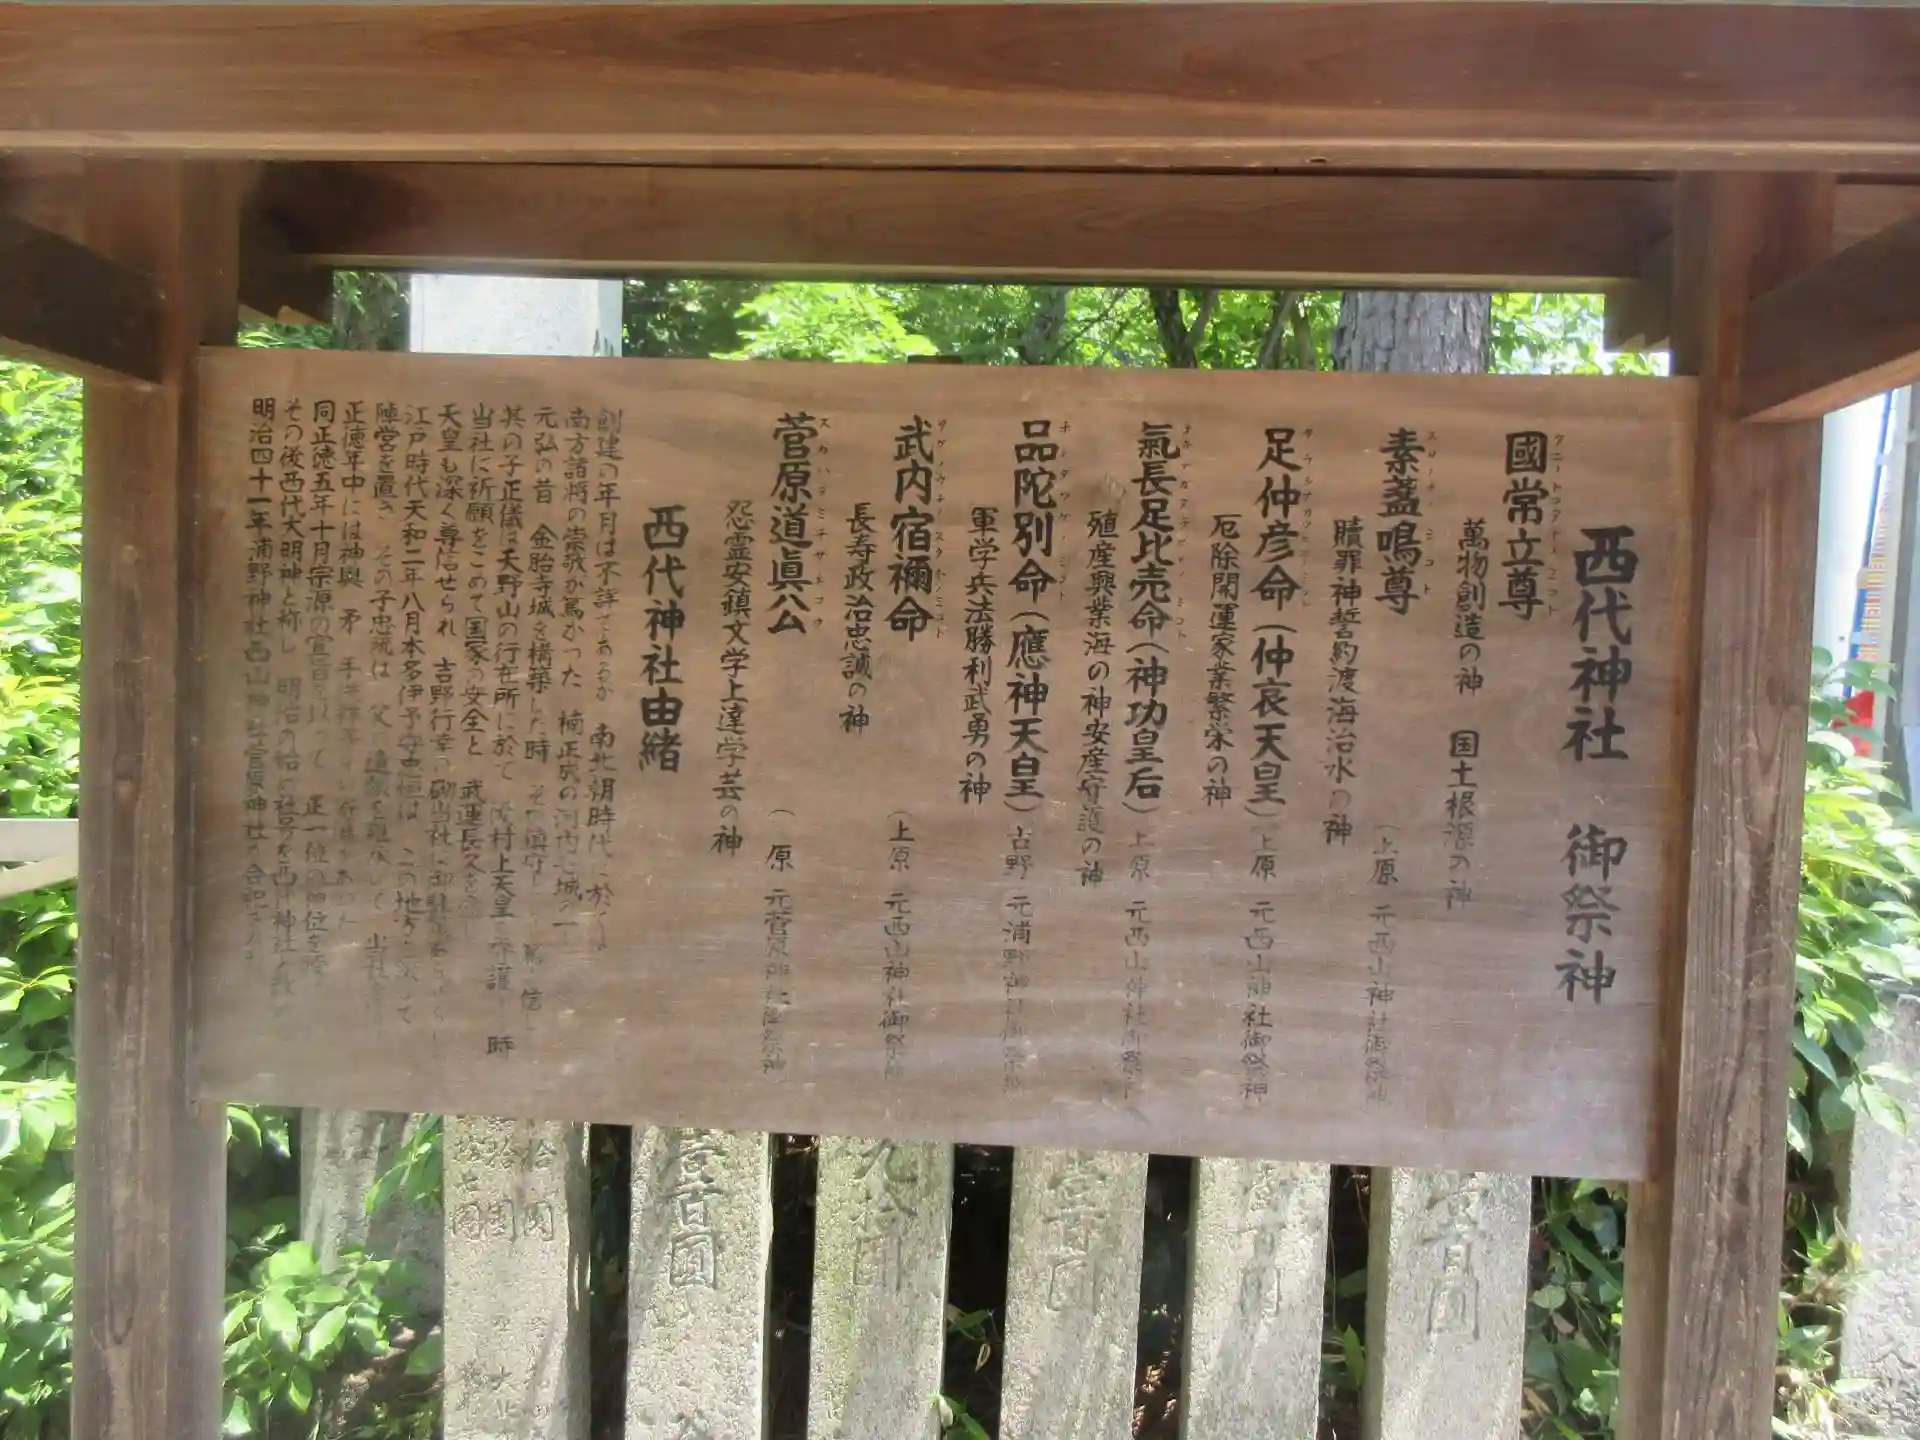 西代神社　御祭神
國常立尊
萬物創造の神　国土根源の神
素盞鳴尊　（上原　元西山神社御祭神
贖罪神誓約渡海治水の神
足仲彦命（仲哀天皇）上原　元西山神社御祭神
厄除開運家業繁栄の神
氣長足比売命（神功皇后）上原　元西山神社御祭神
殖産興業海の神安産守護の神
品陀別命（應神天皇）古野　元浦野神社御祭神
軍学兵法勝利武勇の神
武内宿禰命　（上原　元西山神社御祭神
長寿政治忠誠の神
菅原道眞公　（　原　元菅原神社御祭神
怨霊安鎮文学上達学芸の神
西代神社由緒
創建の年月は不詳であるが　南北朝時代に於ては
南方諸将の崇敬が篤かった　楠正成の河内七城の一
元弘の昔　金胎寺城を構築した時　その鎮守として篤く信
其の子正儀は天野山の行在所に於て　後村上天皇　守護　時
当社に祈願をこめて国家の安全と　武運長久を
天皇も深く尊信せられ　吉野行幸の砌当社に御駐
江戸時代天和二年八月本多伊予守忠恒は　この地方　て
陣営を置き　その子忠統は　父の遺領を継承して　当社
正徳年中には神輿　矛　手
同正徳五年十月宗源の宣旨を以って　正一位の神位を
その後西代大明神と称し　明治の始め社号を西代神社と
明治四十一年浦野神社西山神社菅原神社の合祀
拾圓
拾圓
壹百圓
九拾圓
壹百圓
壹百圓
壹百圓